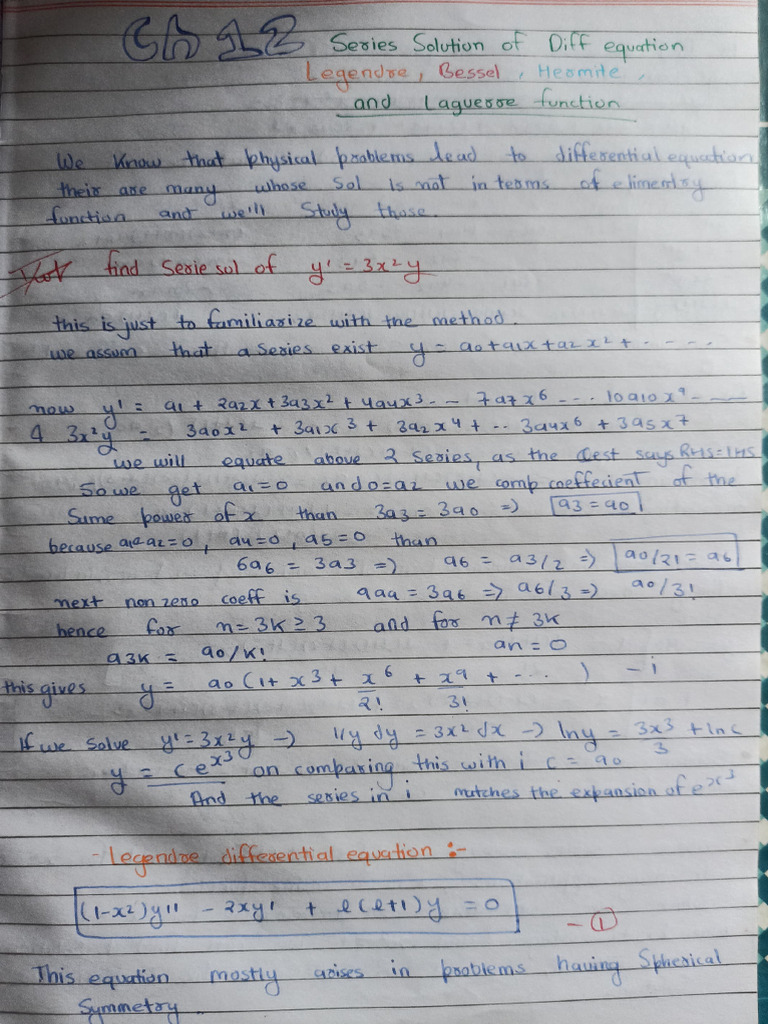 Ch 12 Series Solution of Diff equation
Legendre, Bessel, Hermite,
and Laguerre function
We Know that physical problems lead to differential equation
their are many whose Sol is not in terms of elimentry
function and we'll Study those.
find Serie sol of y' = 3x²y
this is just to familiarize with the method.
we assum that a series exist y = a0+a1x+a2x²+.....
now y' = a1 + 2a2x + 3a3x² + 4a4x³ -- 7a7x⁶ --- 10a10x⁹ ---
& 3x²y = 3a0x² + 3a1x³ + 3a2x⁴ + -- 3a4x⁶ + 3a5x⁷
we will equate above 2 series, as the Qest says RHS=LHS
So we get a1=0 and 0=a2 we comp coeffecient of the
Same power of x than 3a3 = 3a0 => a3 = a0
because a1=a2=0, a4=0, a5=0 than
6a6 = 3a3 => a6 = a3/2 => a0/2! = a6
next non zero coeff is 9a9 = 3a6 => a6/3 => a0/3!
hence for n=3K≥3 and for n≠3K
a3K = a0/K! an=0
this gives y = a0(1+x³+x⁶/2!+x⁹/3!+----) -i
If we solve y'=3x²y -> 1/y dy = 3x²dx -> lny = 3x³/3 + lnc
y = ce^x³ on comparing this with i c = a0
And the series in i matches the expansion of e^x³
- Legendre differential equation :-
(1-x²)y'' - 2xy' + l(l+1)y = 0 -①
This equation mostly arises in problems having Spherical
Symmetry.